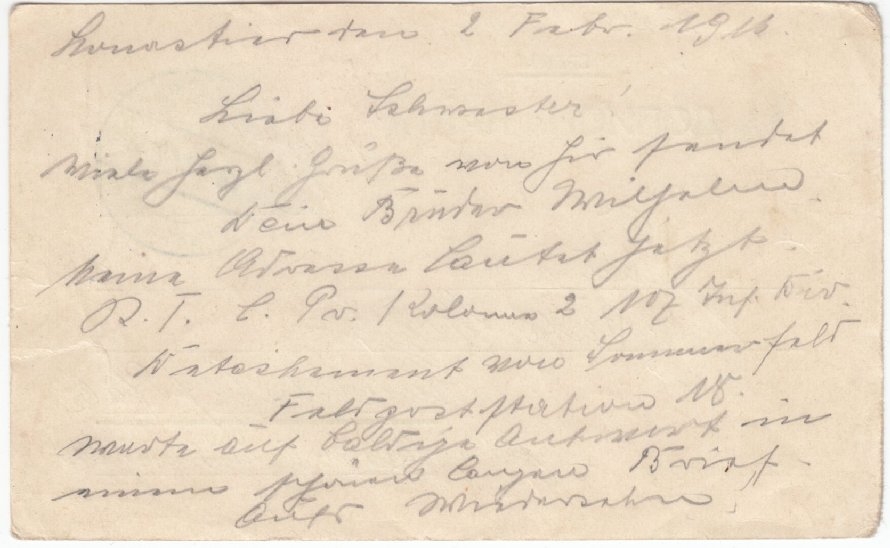 Monastier den 2 Febr. 1916.
Liebe Schwester!
Viele Herzl. Grüße von hir sendet
Dein Bruder Wilhelm.
Meine Adresse lautet jetzt.
R. I. C. Pr. Kolonne 2 107 Inf. Div.
Detachement von Sommerfeld
Feldpoststation 18.
Warte auf baldige Antwort in
einem schönen langen Brief.
Aufs Wiedersehn